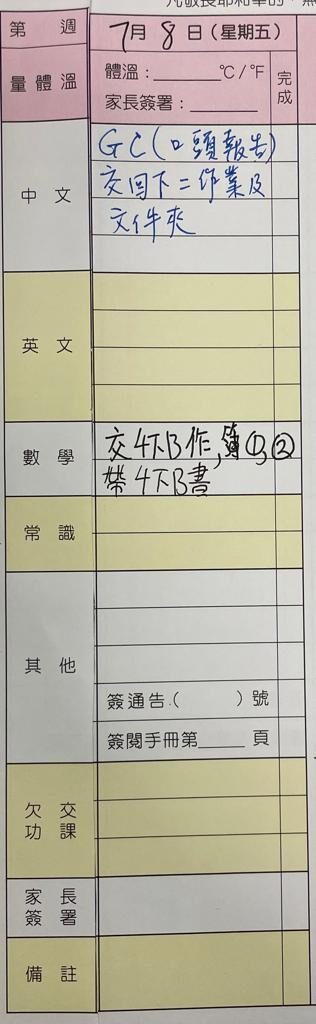 第 週
7月8日(星期五)
量體溫
體溫:______°C/°F
家長簽署:______
完成
中文
GC(口頭報告)
交回下二作業及
文件夾
英文
數學
交4下B作,簿①,②
帶4下B書
常識
其他
簽通告.( )號
簽閱手冊第____頁
欠交
功課
家長
簽署
備註